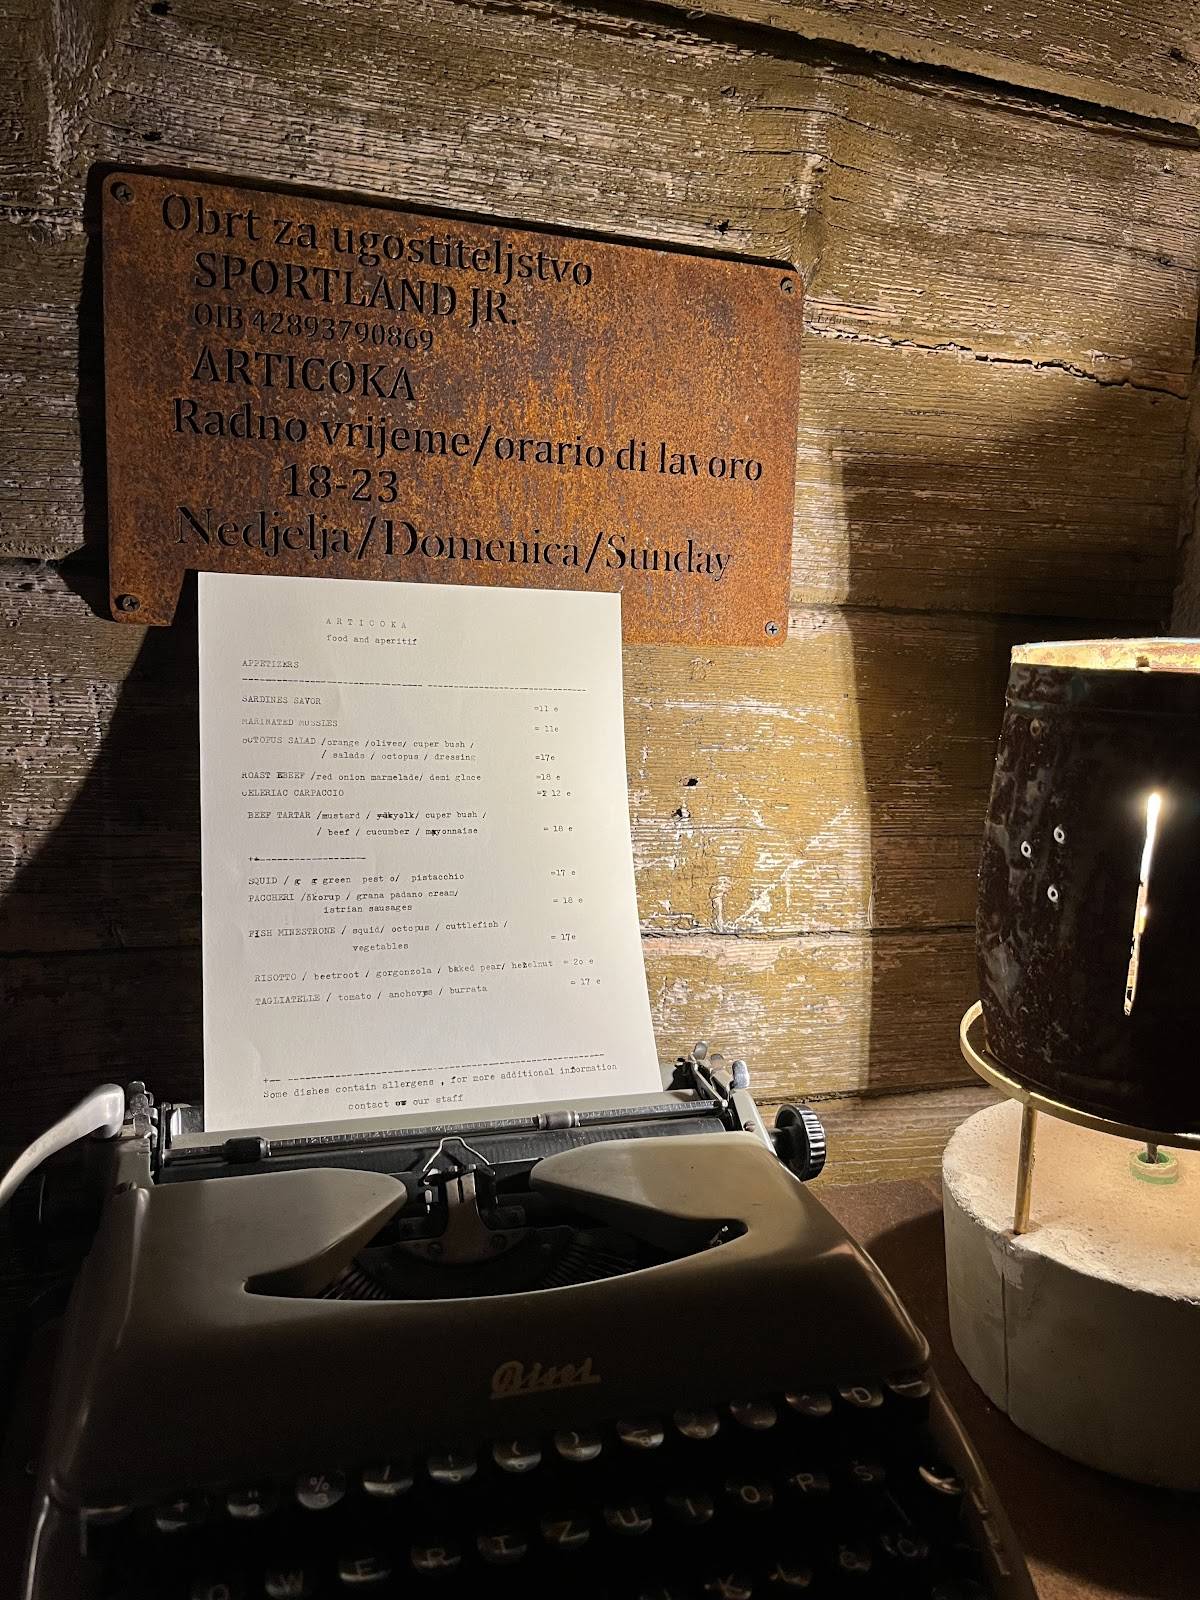 Obrt za ugostiteljstvo
SPORTLAND JR.
OIB 42893790869
ARTICOKA
Radno vrijeme/orario di lavoro
18-23
Nedjelja/Domenica/Sunday
ARTICOKA
food and aperitif
APPETIZERS
SARDINES SAVOR =11 e
MARINATED MUSSLES = 11e
OCTOPUS SALAD /orange /olives/ cuper bush /
/ salads / octopus / dressing =17e
ROAST BEEF /red onion marmelade/ demi glace =18 e
CELERIAC CARPACCIO = 12 e
BEEF TARTAR /mustard / yolk/ cuper bush /
/ beef / cucumber / mayonnaise = 18 e
SQUID / green pest o/ pistacchio =17 e
PACCHERI /škorup / grana padano cream/
istrian sausages = 18 e
FISH MINESTRONE / squid/ octopus / cuttlefish /
vegetables = 17e
RISOTTO / beetroot / gorgonzola / baked pear/ hezelnut = 2o e
TAGLIATELLE / tomato / anchovys / burrata = 17 e
Some dishes contain allergens , for more additional information
contact our staff
Biser
%
W E R T Z U I O P Š
D